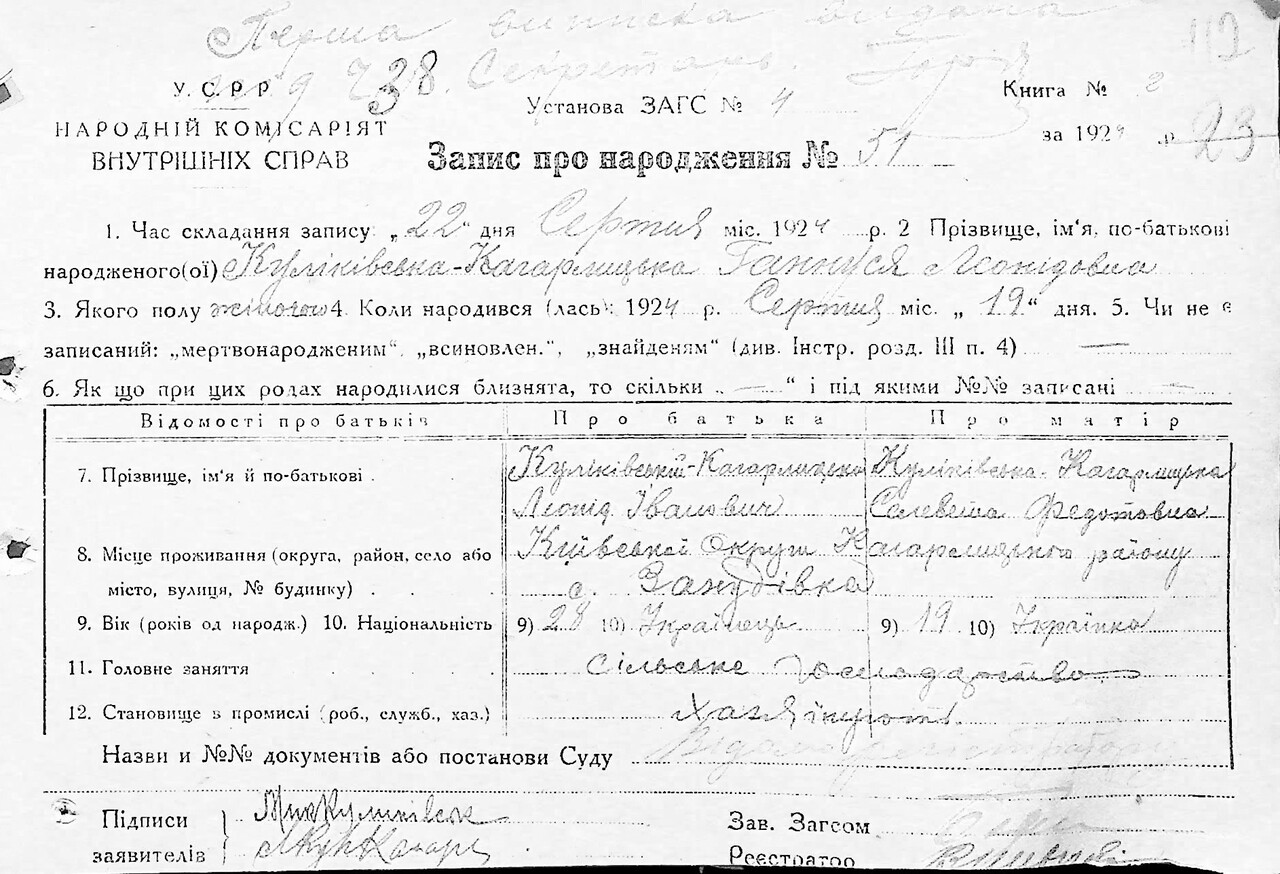 Перша виписка видана
9 VII 38. Секретарь.
112
У.С.Р.Р.
НАРОДНІЙ КОМІСАРІЯТ
ВНУТРІШНІХ СПРАВ
Установа ЗАГС № 4
Книга № 2
за 1924 р.
23
Запис про народження № 51
1. Час складання запису: „22“ дня Серпня міс. 1924 р. 2 Прізвище, ім'я, по-батькові
народженого(ої) Куліківська-Кагарлицька Ганнуся Леонідовна
3. Якого полу жіночого 4. Коли народився (лась): 1924 р. Серпня міс. „ 19 “ дня. 5. Чи не є
записаний: „мертвонародженим“, „всиновлен.“, „знайденям“ (див. Інстр. розд. III п. 4) —
6. Як що при цих родах народилися близнята, то скільки „ — “ і під якими №№ записані —
Відомості про батьків Про батька Про матір
7. Прізвище, ім'я й по-батькові . . Куліківський-Кагарлицький Куліківська-Кагарлицька
Леонід Іванович Селевета Федотовна
8. Місце проживання (округа, район, село або Київської Округи Кагарлицького району
місто, вулиця, № будинку) . . . с. Занудівка
9. Вік (років од народж.) 10. Національність 9) 28 10) Українець 9) 19 10) Українка
11. Головне заняття . . . . Сільське господарство
12. Становище в промислі (роб., служб., хаз.)
Назви и №№ документів або постанови Суду
Підписи
заявителів
Зав. Загсом
Реєстратор